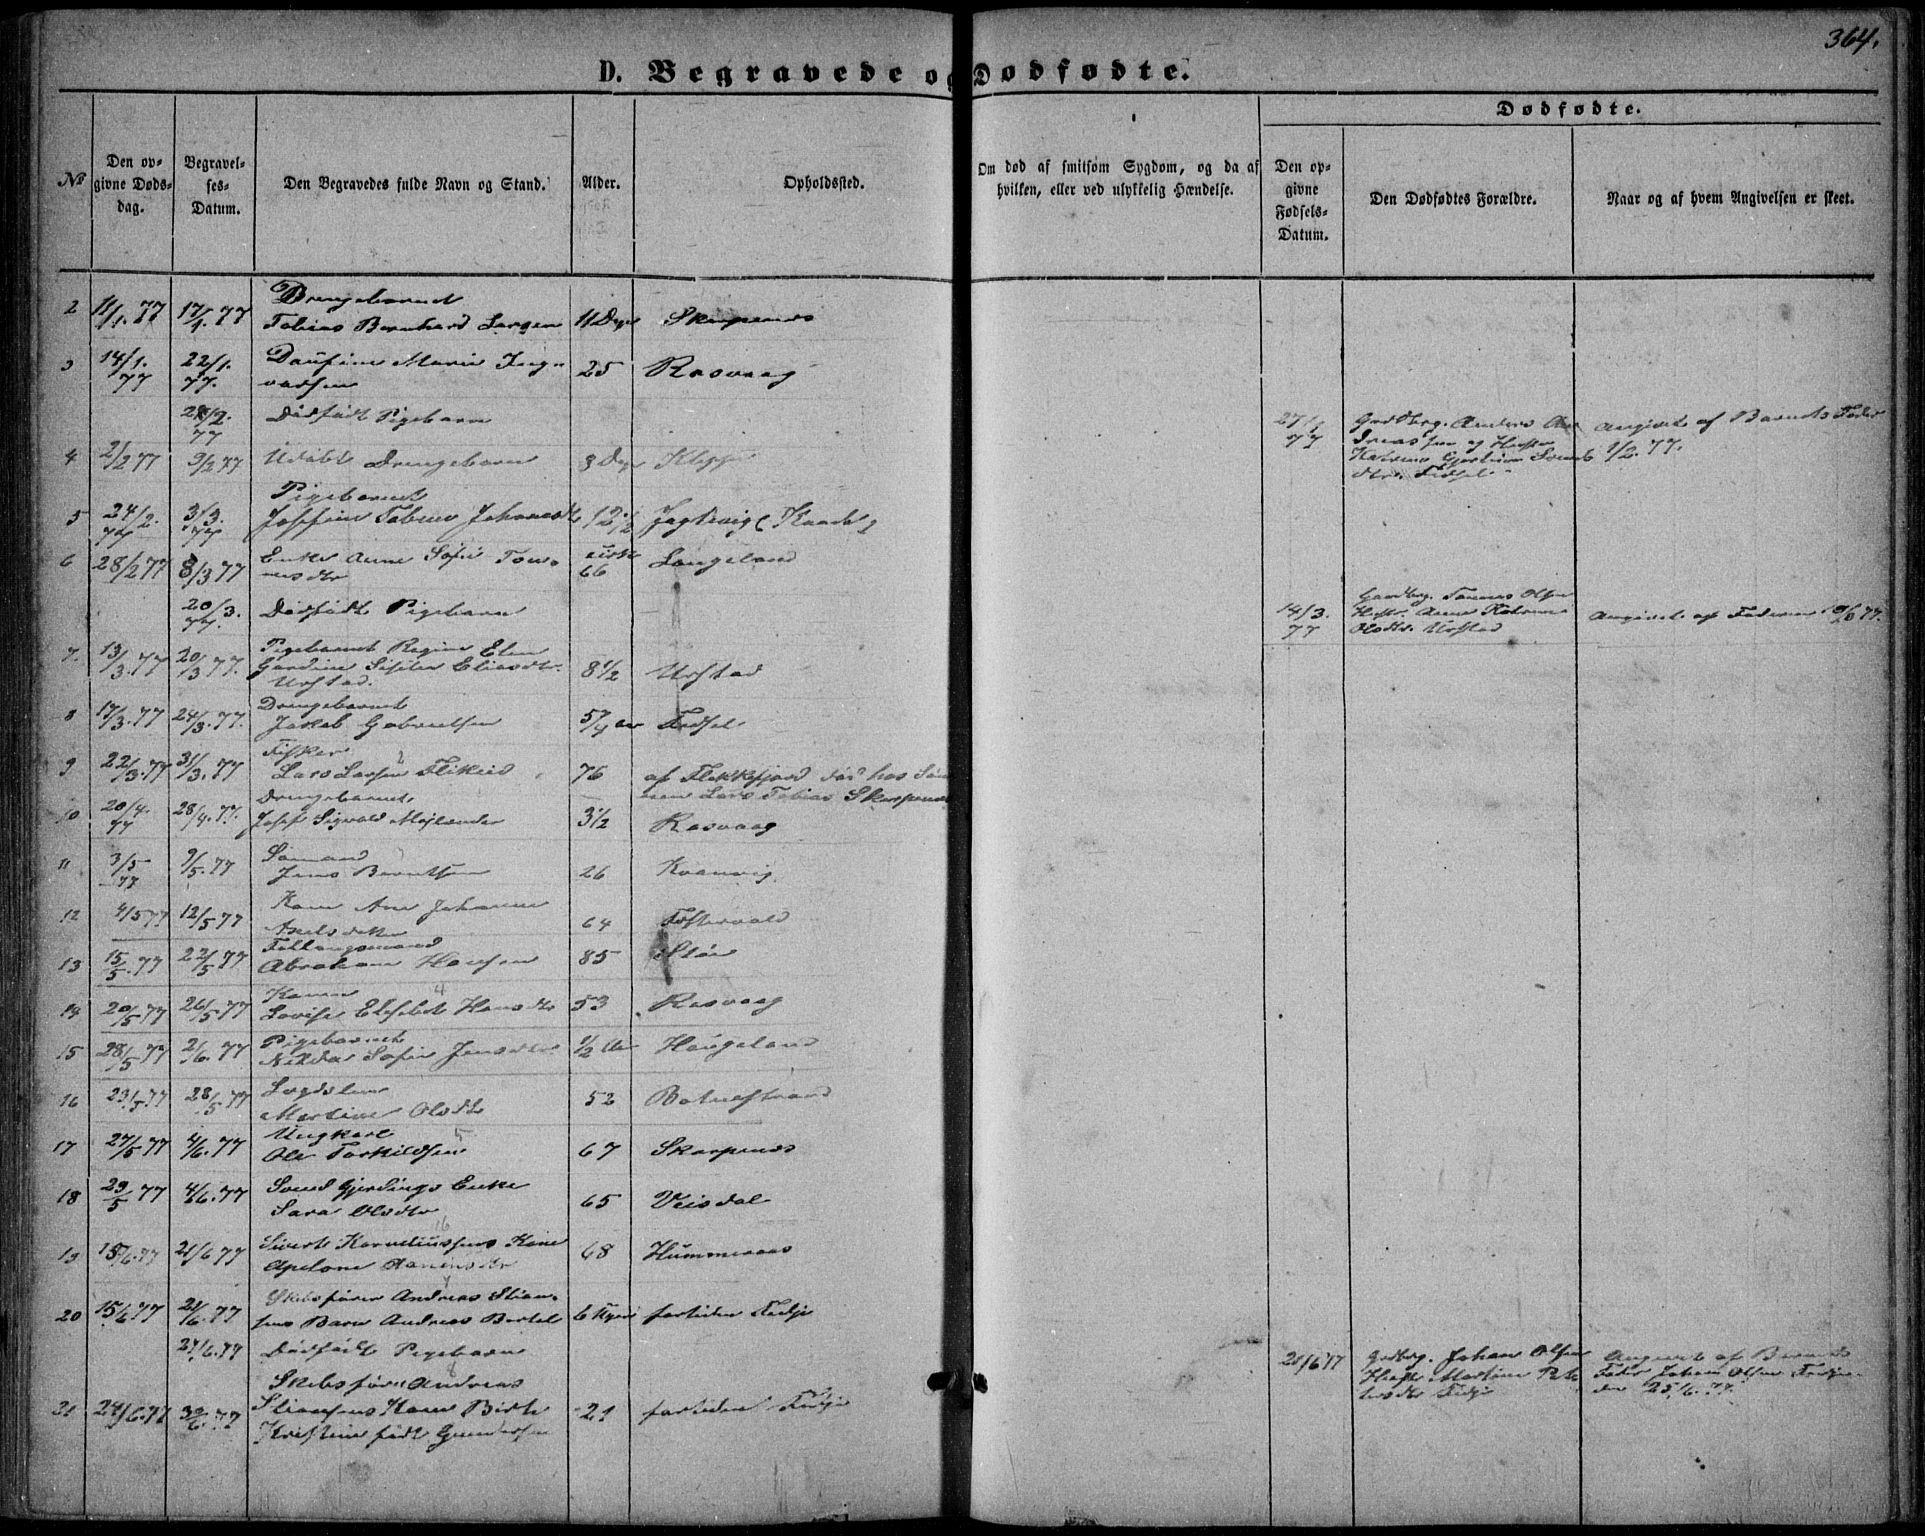 364.
D. Begravede og Dødfødte.
№
Den opgivne Dødsdag.
Begravelses-Datum.
Den Begravedes fulde Navn og Stand.
Alder.
Opholdssted.
Om død af smitsom Sygdom, og da af hvilken, eller ved ulykkelig Hændelse.
Dødfødte.
Den opgivne Fødsels-Datum.
Den Dødfødtes Forældre.
Naar og af hvem Angivelsen er skeet.
Drengebarnet
2 11/1.77 17/1.77 Tobias Bernhard Larsen 11 Dage Skarpenes
3 14/1.77 22/1.77. Marie Ingvarsen 25 Rasvaag
77 Dødfødt Pigebarn
27/1 77 Grdbrg. Anders Andreassen og Hustru Katrine Fidsel
Angivet af Barnets Fader 1/2.77.
4 2/2 77 9/2 77 Udøbt Drengebarn 8 Dage
Pigebarnet
5 24/2. 77 3/3. 77 Josefine Tobine 12 1/2
6 28/2 77 8/3 77 Enke Anne Sofie Tønnesdtr cirka 66 Langeland
20/3. 77. Dødfødt Pigebarn
14/3. 77 Gaardbrg. Tønnes Olsen Hustr. Anne Katrine Olsdtr. Urstad
Angivet af Faderen
7. 13/3.77 20/3 77. Pigebarnet Regine Elen Gardine Eliasdtr. Urstad. 8 1/2 Urstad
Drengebarnet
8 17/3.77 24/3.77. Jakob Gabrielsen 5/4 aar Fidsel
Fisker
9 22/3.77 31/3.77 Lars Larsen Flikeid 76 af Flekkefjord død hos Sønnen Lars Tobias Skarpenes
Drengebarnet
10 20/4. 77 28/4.77. Josef Sigvald 3 1/2 Rasvaag
Sømand
11 3/5 77 9/5.77 Jens Berntsen 26 Kvanvig
12 4/5 77 12/5 77 Kone Ane Johanne Axelsdatter 64
13 15/5.77 22/5 77 Abraham Hansen 85
Konen
14 20/5 77 26/5 77 Lovise Elisabet Hansdtr 53 Rasvaag
Pigebarnet
15 28/5 77 2/6 77 Sofie Jensdtr 1/2 Aar Haugeland
16 23/5 77 28/5 77 Martine Olsdtr 52 Botnestrand
Ungkarl
17 27/5 77 4/6.77 Ole Torkildsen 67 Skarpenes
18 29/5 77 4/6.77 Svend Gjerdings Enke Sara Olsdtr 65 Veisdal
19 15/6.77 21/6 77 Siverts Korneliussens Kone Apelone 68 Hummeraas
20 15/6.77 21/6.77 Skibsfører Andreas Stiansens Barn Andreas Bertel 6 Uger fortiden Fedje
27/6.77 Dødfødt Pigebarn
21/6 77 Grdbrg. Johan Olsen Hustr. Martine Fedje
Angivet af Barnets Fader Johan Olsen Fedje den 25/6.77.
21 24/6.77 Skibsfører Andreas Stiansens Kone Birte Kristine født Gundersen 21 fortiden Fedje